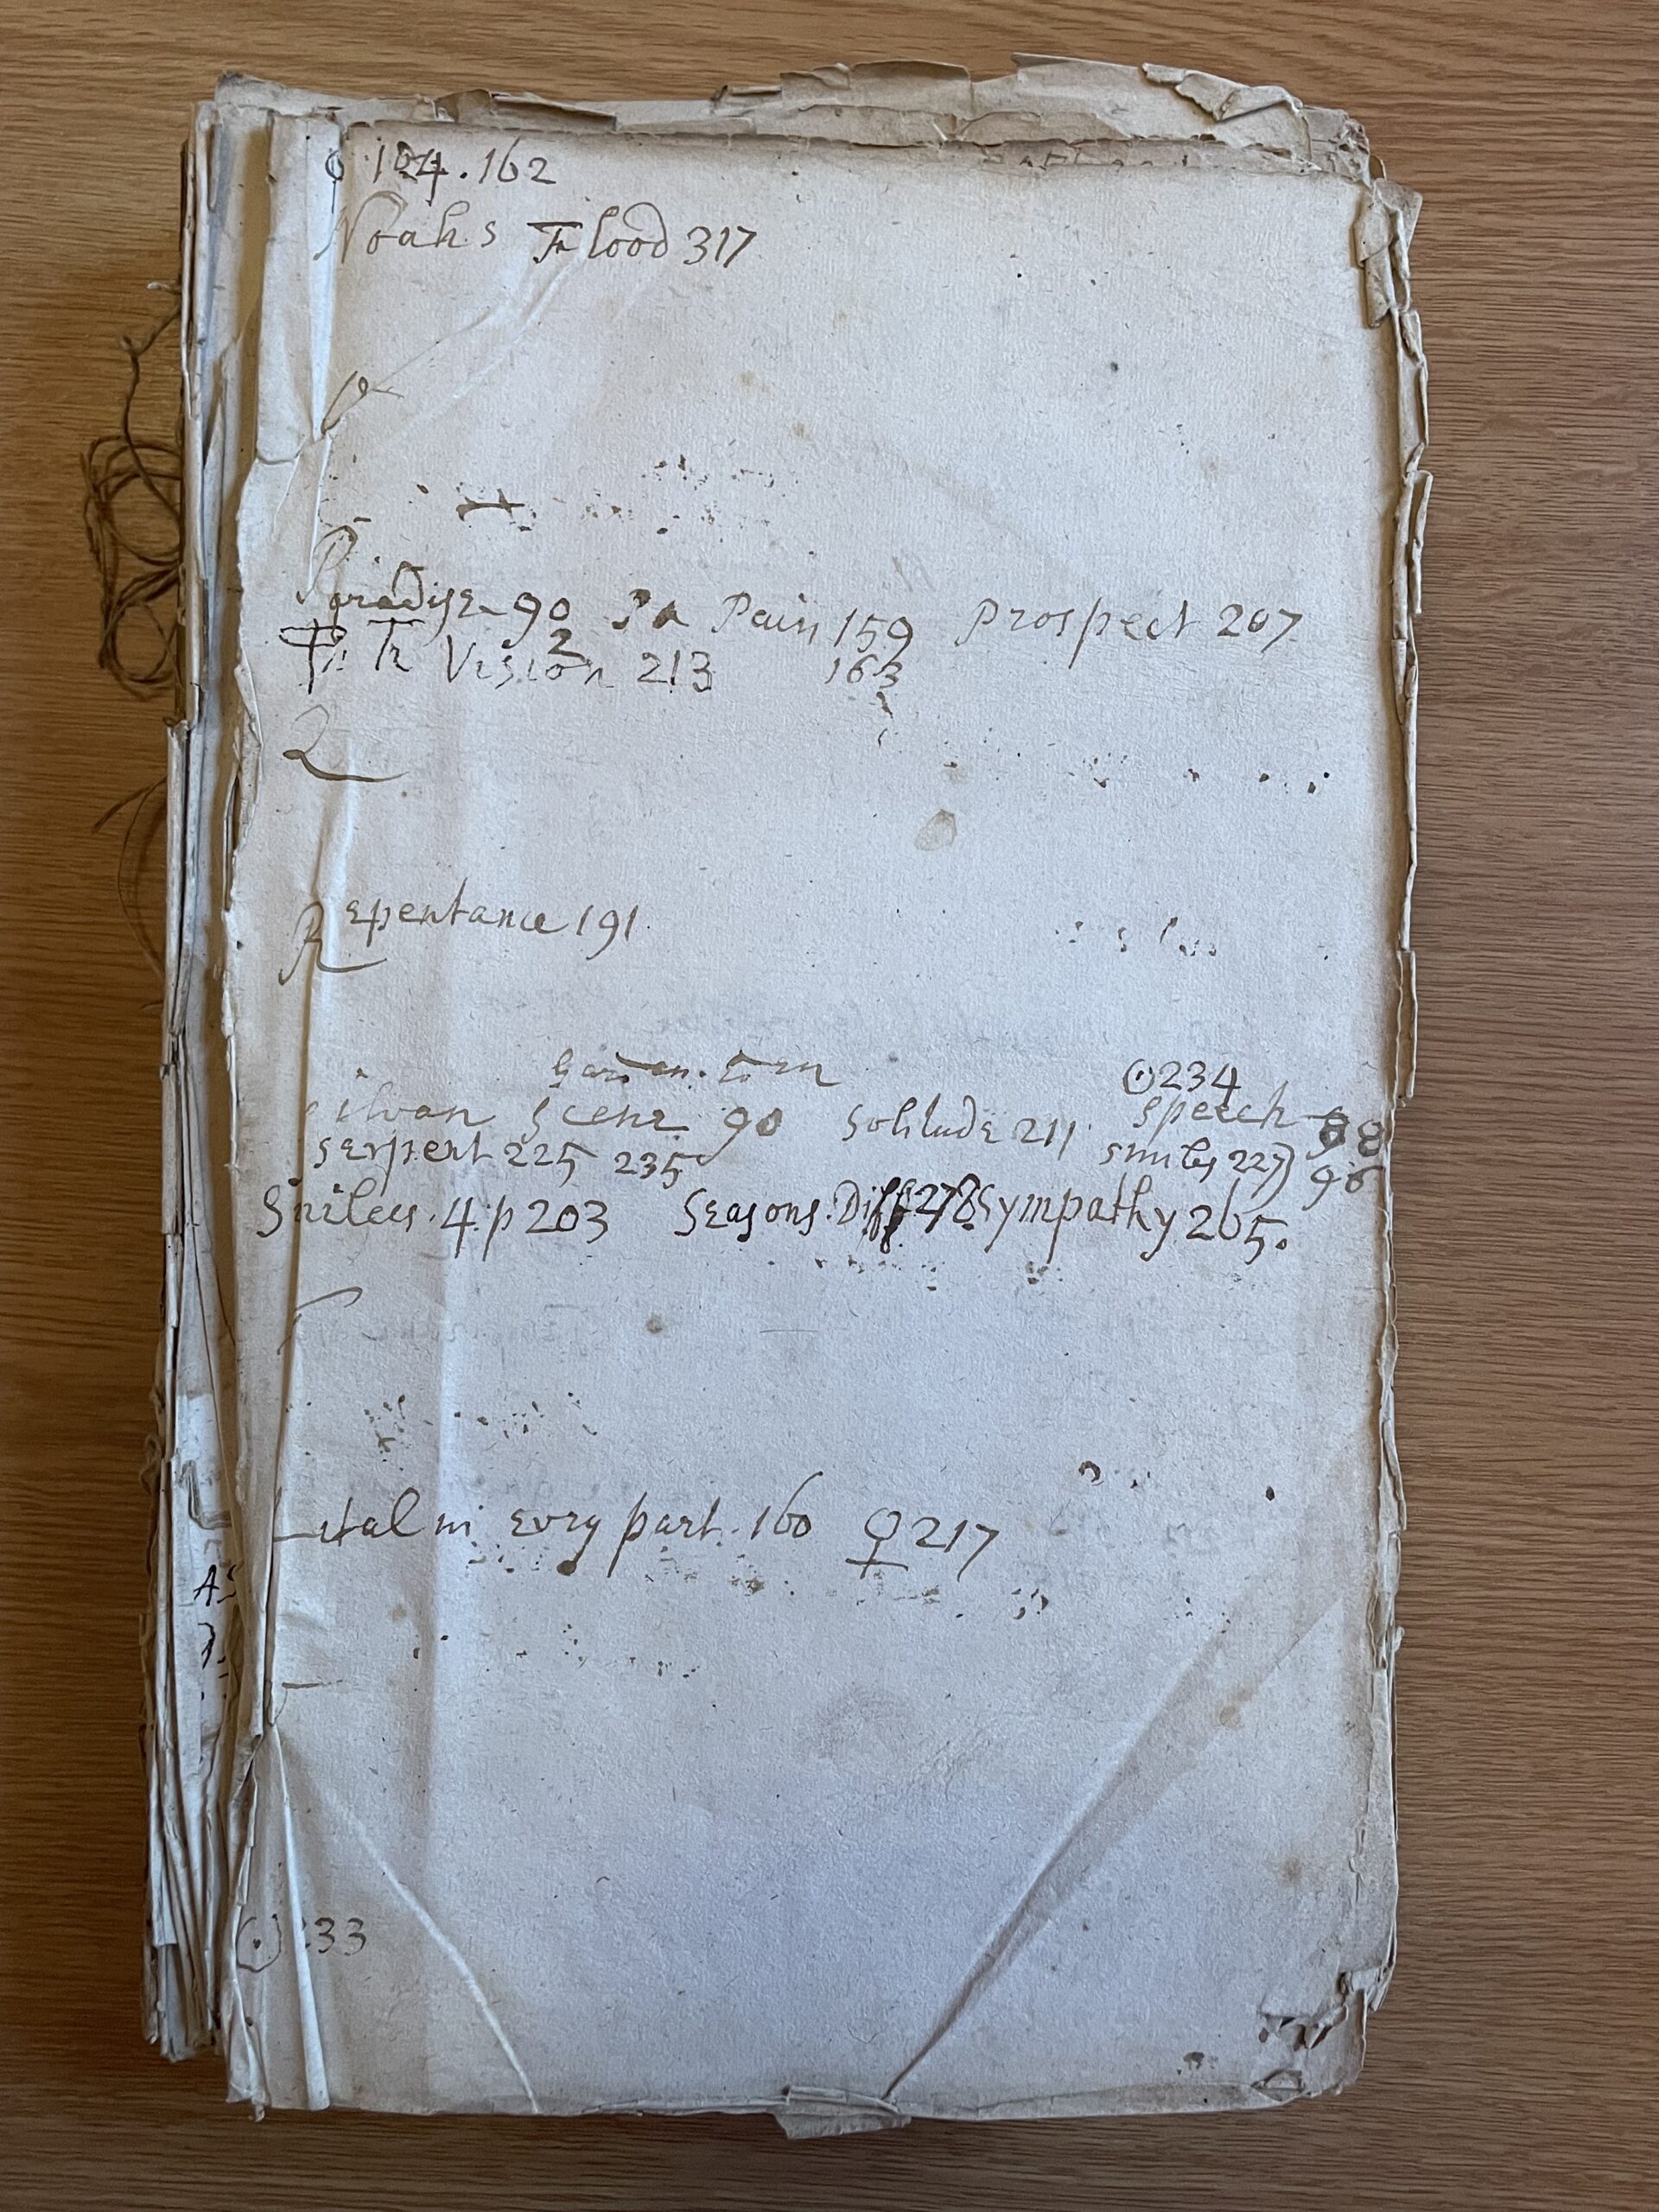 104.162
Noahs Flood 317
Paradise 90 Pa Pain 159 Prospect 207
Vision 213 163
2
Q
Repentance 191
Garden. Eden ☉234
Silvan Scene 90 Solitude 211 Speech 88
Serpent 225 235 Smiles 227) 96
Smiles. 4. p 203 Seasons. Diff 278 Sympathy 265.
T
Vital in evry part. 160 ♀ 217
☉ 233